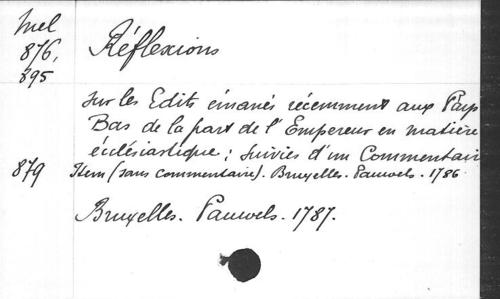 Mel
876,
895
Réflexions
sur les Edits émanés récemment aux Pays
Bas de la part de l'Empereur en matière
écclésiastique; suivies d'un Commentair
879 Item (sans commentaire). Bruxelles. Pauwels. 1786
Bruxelles. Pauwels. 1787.